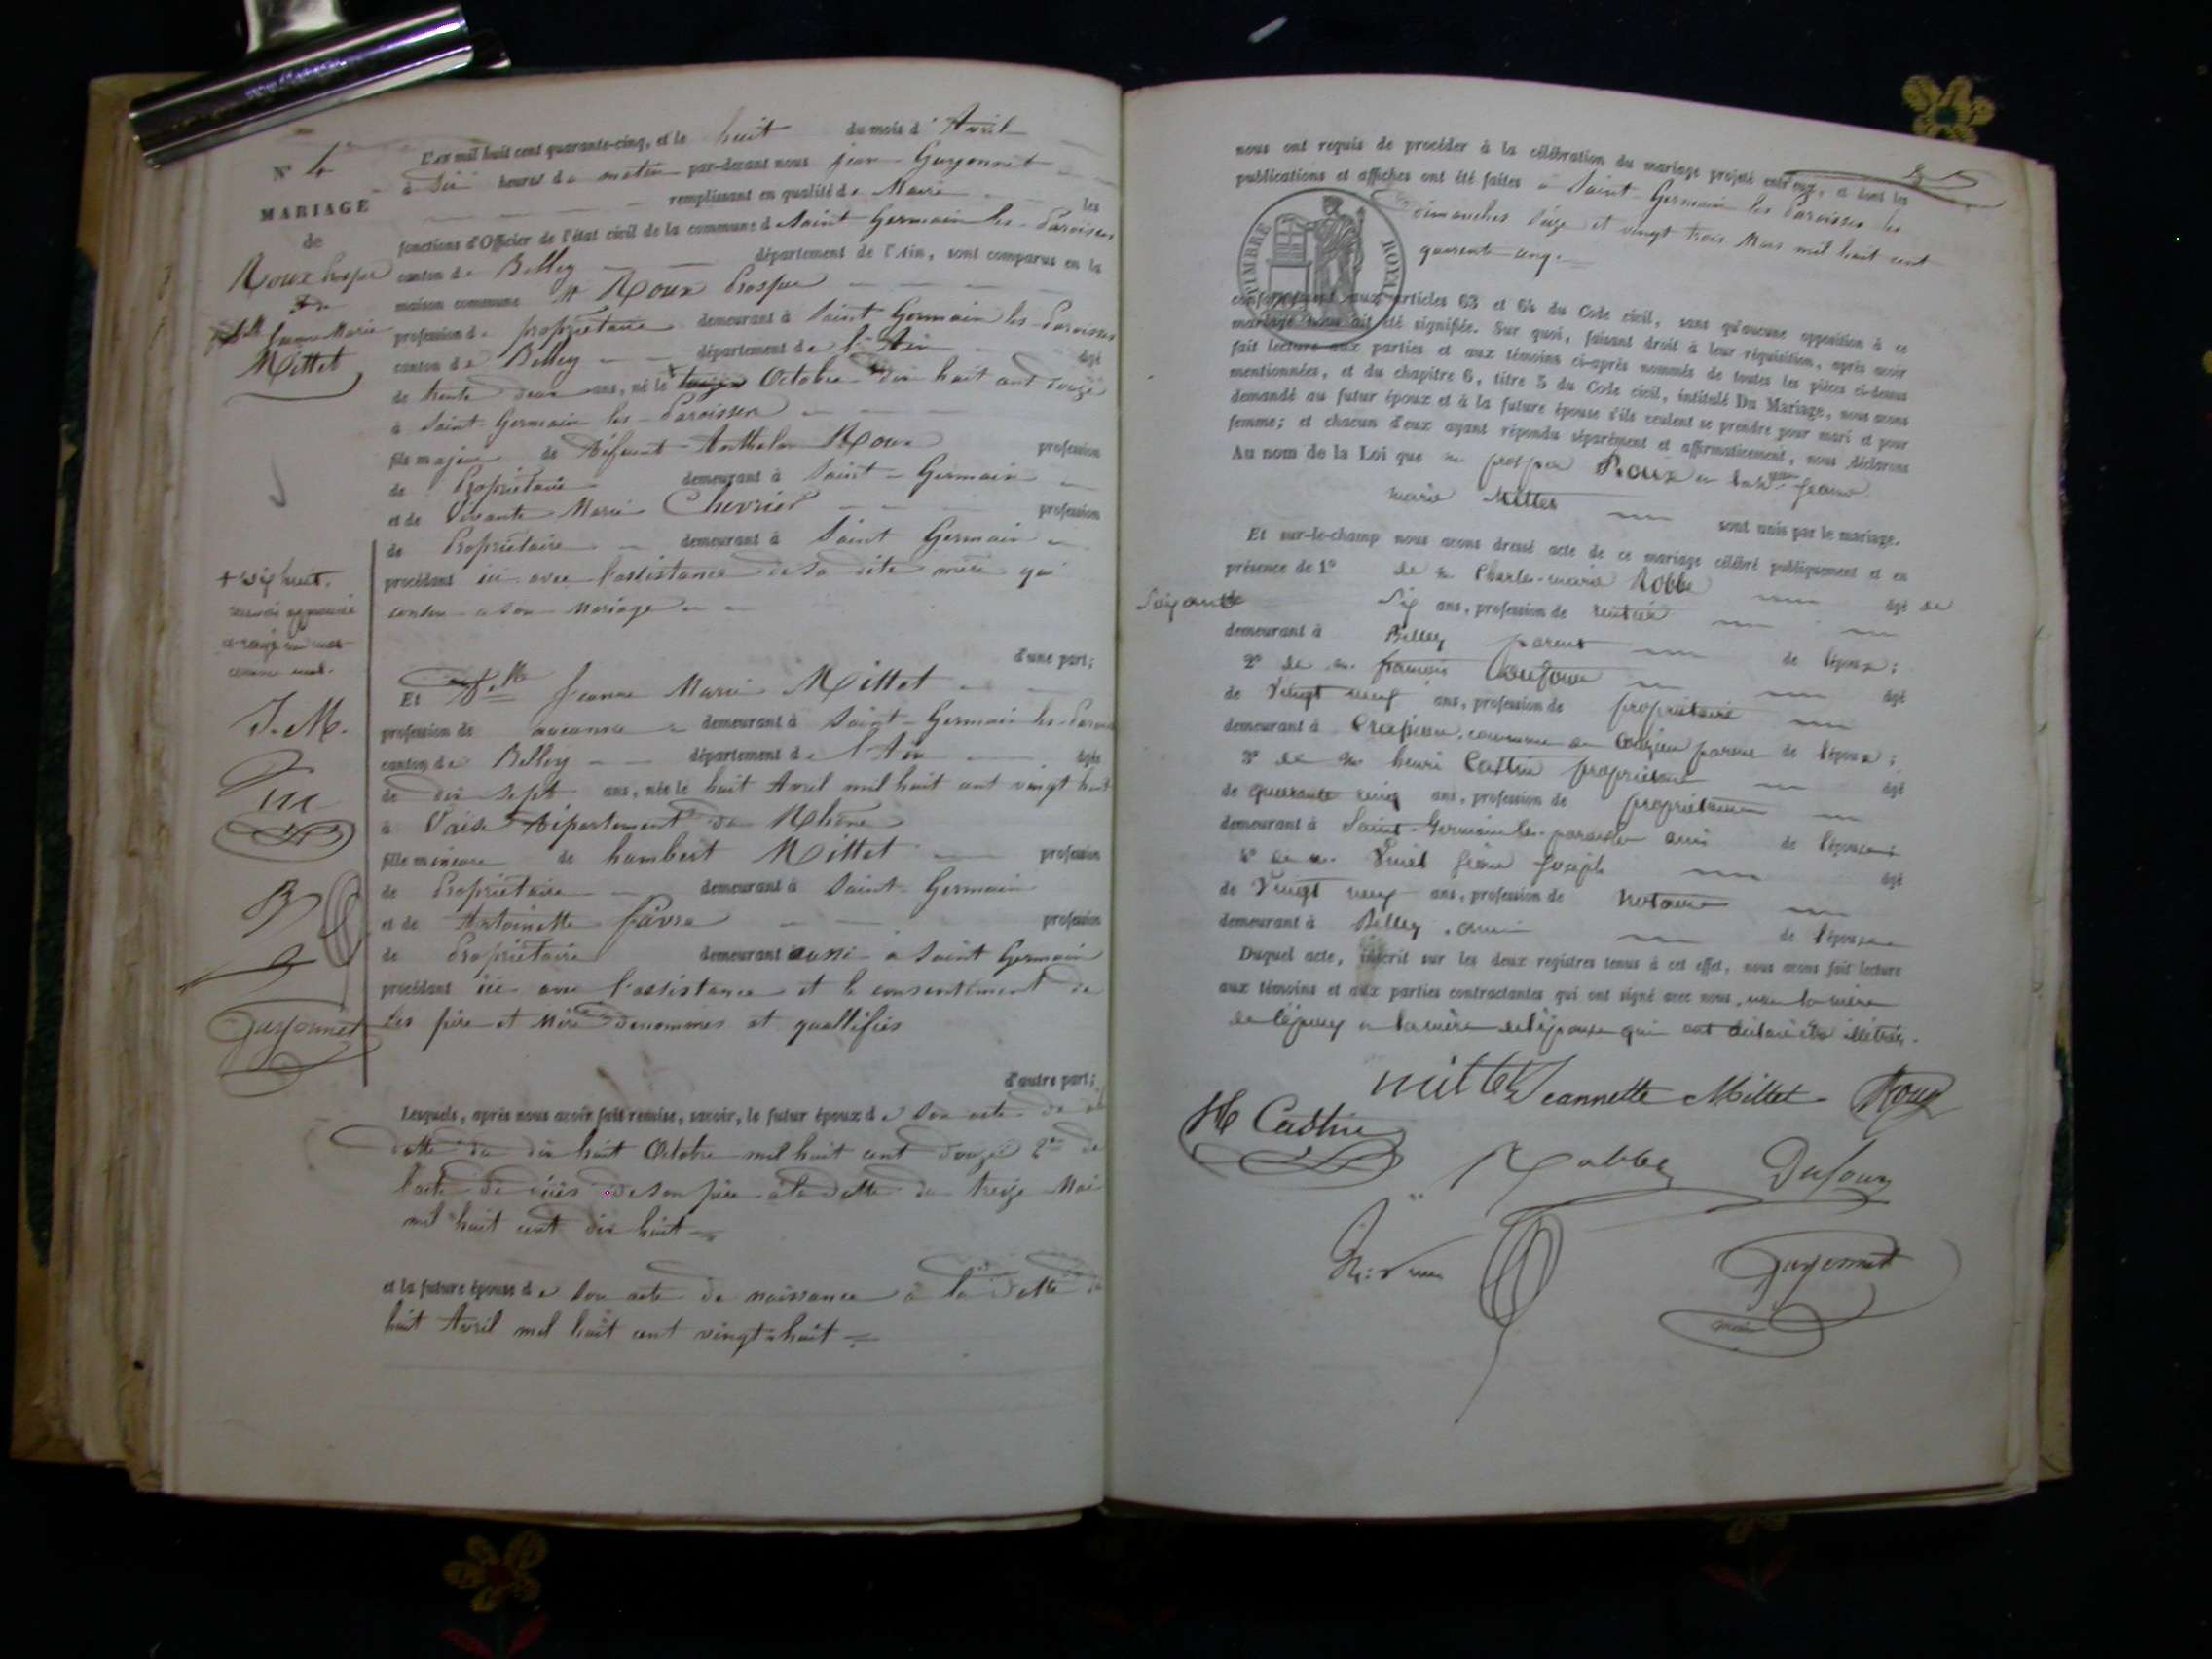 N° 4
MARIAGE
de
Roux Prosper
et de
Dlle Jeanne Marie
Mittet
L'an mil huit cent quarante-cinq, et le huit du mois d'Avril
à dix heures du matin par-devant nous jean Guyonnet
remplissant en qualité de Maire les
fonctions d'Officier de l'état civil de la commune de Saint Germain les Paroisses
canton de Belley département de l'Ain, sont comparus en la
maison commune Mr Roux Prosper
profession de propriétaire demeurant à Saint Germain les Paroisses
canton de Belley département de l'Ain âgé
de trente deux ans, né le Octobre mil huit cent douze
à Saint Germain les Paroisses
fils majeur de Défunt Anthelme Roux profession
de Propriétaire demeurant à Saint-Germain
et de Vivante Marie Chevrier profession
de Propriétaire demeurant à Saint Germain
procédant ici avec l'assistance de sa dite mère qui
consent a son Mariage
d'une part;
+ dix huit.
renvoi approuvé
comme nul.
J. M.
R
Guyonnet
Et Dlle Jeanne Marie Mittet
profession de aucune demeurant à Saint-Germain les Parois
canton de Belley département de l'Ain âgée
de dix sept ans, née le huit Avril mil huit cent vingt huit
à Vaise Département du Rhône
fille mineure de humbert Mittet profession
de Propriétaire demeurant à Saint-Germain
et de Antoinette Favre profession
de Propriétaire demeurant aussi à Saint Germain
procédant ici avec l'assistance et le consentement de
ses père et Mère denommes et quallifiés
d'autre part;
Lesquels, après nous avoir fait remise, savoir, le futur époux de son acte de
datte du dix huit Octobre mil huit cent douze 2° de
l'acte de décès de son père à la datte du treize Mai
mil huit cent dix huit
et la future épouse de son acte de naissance à la datte du
huit Avril mil huit cent vingt-huit
nous ont requis de procéder à la célébration du mariage projeté entr'eux, et dont les
publications et affiches ont été faites à Saint-Germain les Paroisses les
dimanches seize et vingt trois Mars mil huit cent
quarante cinq.
TIMBRE ROYAL
conformément aux articles 63 et 64 du Code civil, sans qu'aucune opposition à ce
mariage nous ait été signifiée. Sur quoi, faisant droit à leur réquisition, après avoir
fait lecture aux parties et aux témoins ci-après nommés de toutes les pièces ci-dessus
mentionnées, et du chapitre 6, titre 5 du Code civil, intitulé Du Mariage, nous avons
demandé au futur époux et à la future épouse s'ils veulent se prendre pour mari et pour
femme; et chacun d'eux ayant répondu séparément et affirmativement, nous déclarons
Au nom de la Loi que m. prosper Roux et jeanne
marie Mittet sont unis par le mariage.
Et sur-le-champ nous avons dressé acte de ce mariage célébré publiquement et en
présence de 1° de m. Charles-marie Robbe âgé de
soixante six ans, profession de rentier
demeurant à Belley parent de l'époux;
2° de m. françois Dufour âgé
de Vingt neuf ans, profession de propriétaire
demeurant à commune de parent de l'époux;
3° de m. henri Castin propriétaire âgé
de quarante cinq ans, profession de propriétaire
demeurant à Saint-Germain les paroisses ami de l'épouse
4° de m. jean joseph âgé
de Vingt neuf ans, profession de notaire
demeurant à Belley, ami de l'épouse
Duquel acte, inscrit sur les deux registres tenus à cet effet, nous avons fait lecture
aux témoins et aux parties contractantes qui ont signé avec nous, non la mère
de l'époux et la mère de l'épouse qui ont déclaré être illétrés.
mittet Jeannette Mittet Roux
H Castin
Robbe Dufour
Guyonnet
maire